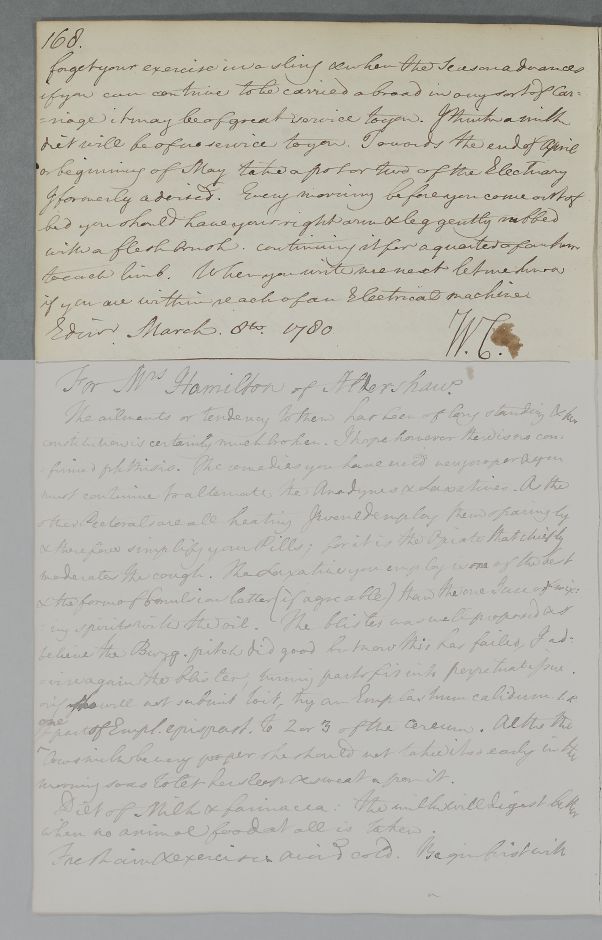 168.
forget your exercise in a sling & when the season advances
if you can contrive to be carried abroad in any sort of Car-
=riage it may be of great service to you. I think a milk
diet will be of no service to you. Towards the end of April
or beginning of May take a pot or two of the Electuary
I formerly advised. Every morning before you come out of
bed you should have your right arm & leg gently rubbed
with a flesh brush. continuing it for a quarter of an hour
to each limb. When you write me next let me know
if you are within reach of an Electrical machine
Edinr. March. 8th. 1780 W.C.
For Mrs Hamilton of
The ailments or tendency to them has been of long standing & her
constitution is certainly much broken. I hope however there is no con-
=firmed phthisis. The remedies you have used very proper & you
must continue to alternate the Anodynes & Laxatives. As the
other Pectorals are all heating I would employ them sparingly
& therefore simplify your Pills; for it is the Opiate that chiefly
moderates the cough. The Laxative you employ is one of the best
& the form of Emulsion better (if agreeable) than the one of mix-
=ing spirits with the oil. The blister was well proposed & I
believe the Burg. pitch did good but now this has failed, I ad-
=vise again the blister, turning part of it into perpetual Issue.
or if she will not submit to it, try an Emplastrum calidum i.e.
one part of Empl. epispast. to 2 or 3 of the cereum. Altho the
Cows milk be very proper she should not take it so early in the
morning so as to let her sleep & sweat upon it.
Diet of Milk & farinacea: the milk will digest better
when no animal food at all is taken.
Fresh air & exercise avoid cold. Begin first with